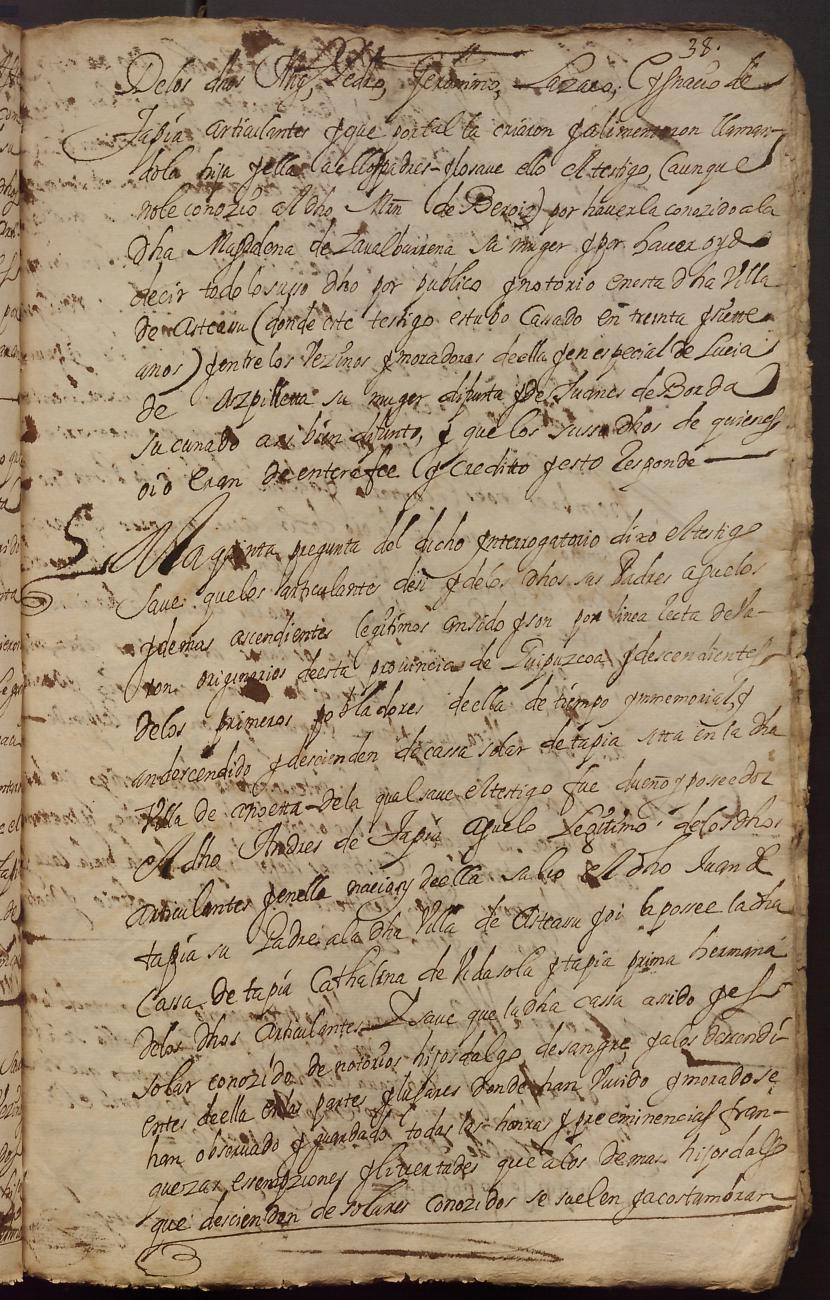 38.
Delos dhos Mig, Pedro, Jeronimo, Lazaro, Cygnacio de
Tapia articulantes y que por tal la criaron y alimentaron llaman-
dola hija y ella aellos padres y losave ello eltestigo, (aunque
nole conozio aldho Mrn de Beroiz) por haverla conozidoala
dha Magdalena de Zavalbarrena su muger y por haver oydo
decir todo lo suso dho por publico y notorio enesta dha Villa
de Asteasu (donde este testigo estubo Casado en treinta y siette
años) y entre los Vezinos y moradores deella y en especial de Lucia
de Azpilleta su muger difunta y de Juanes de Borda
su cunado assi bien difunto, y que los susso dhos de quienes
oio eran de entera fee y Creditto y esto Responde
5 A la quinta pregunta del dicho ynterrogatorio dixo eltestigo
save quelos articulantes desi y delos dhos sus Padres aguelos
y demas ascendientes legitimos an sido y son por linea recta de Va-
ron originarios deesta provincia de Guipuzcoa y descendientes
delos primeros pobladores deella de tiempo ynmemorial, y
an descendido y descienden de cassa solar de tapia sita en la dha
Villa de anoetta dela qual save eltestigo fue dueño y poseedor
el dho Andres de Tapia aguelo Legitimo delos dhos
articulantes y enella nacio y deella salio el dho Juan de
tapia su Padre ala dha Villa de Asteasu y oi la possee la dha
Cassa de tapia Cathalina de Vidasola y tapia prima hermana
delos dhos articulantes Y save que la dha cassa a sido y es
solar conozido de notorios hijosdalgo de sangre, y alos descendi-
entes deella en las partes y lugares donde han Vivido y morado se
han observado y guardado todas las honras y preeminencias fran-
quezas esempziones y livertades que alos demas hijosdalgo
que descienden de solares conozidos se suelen y acostumbran